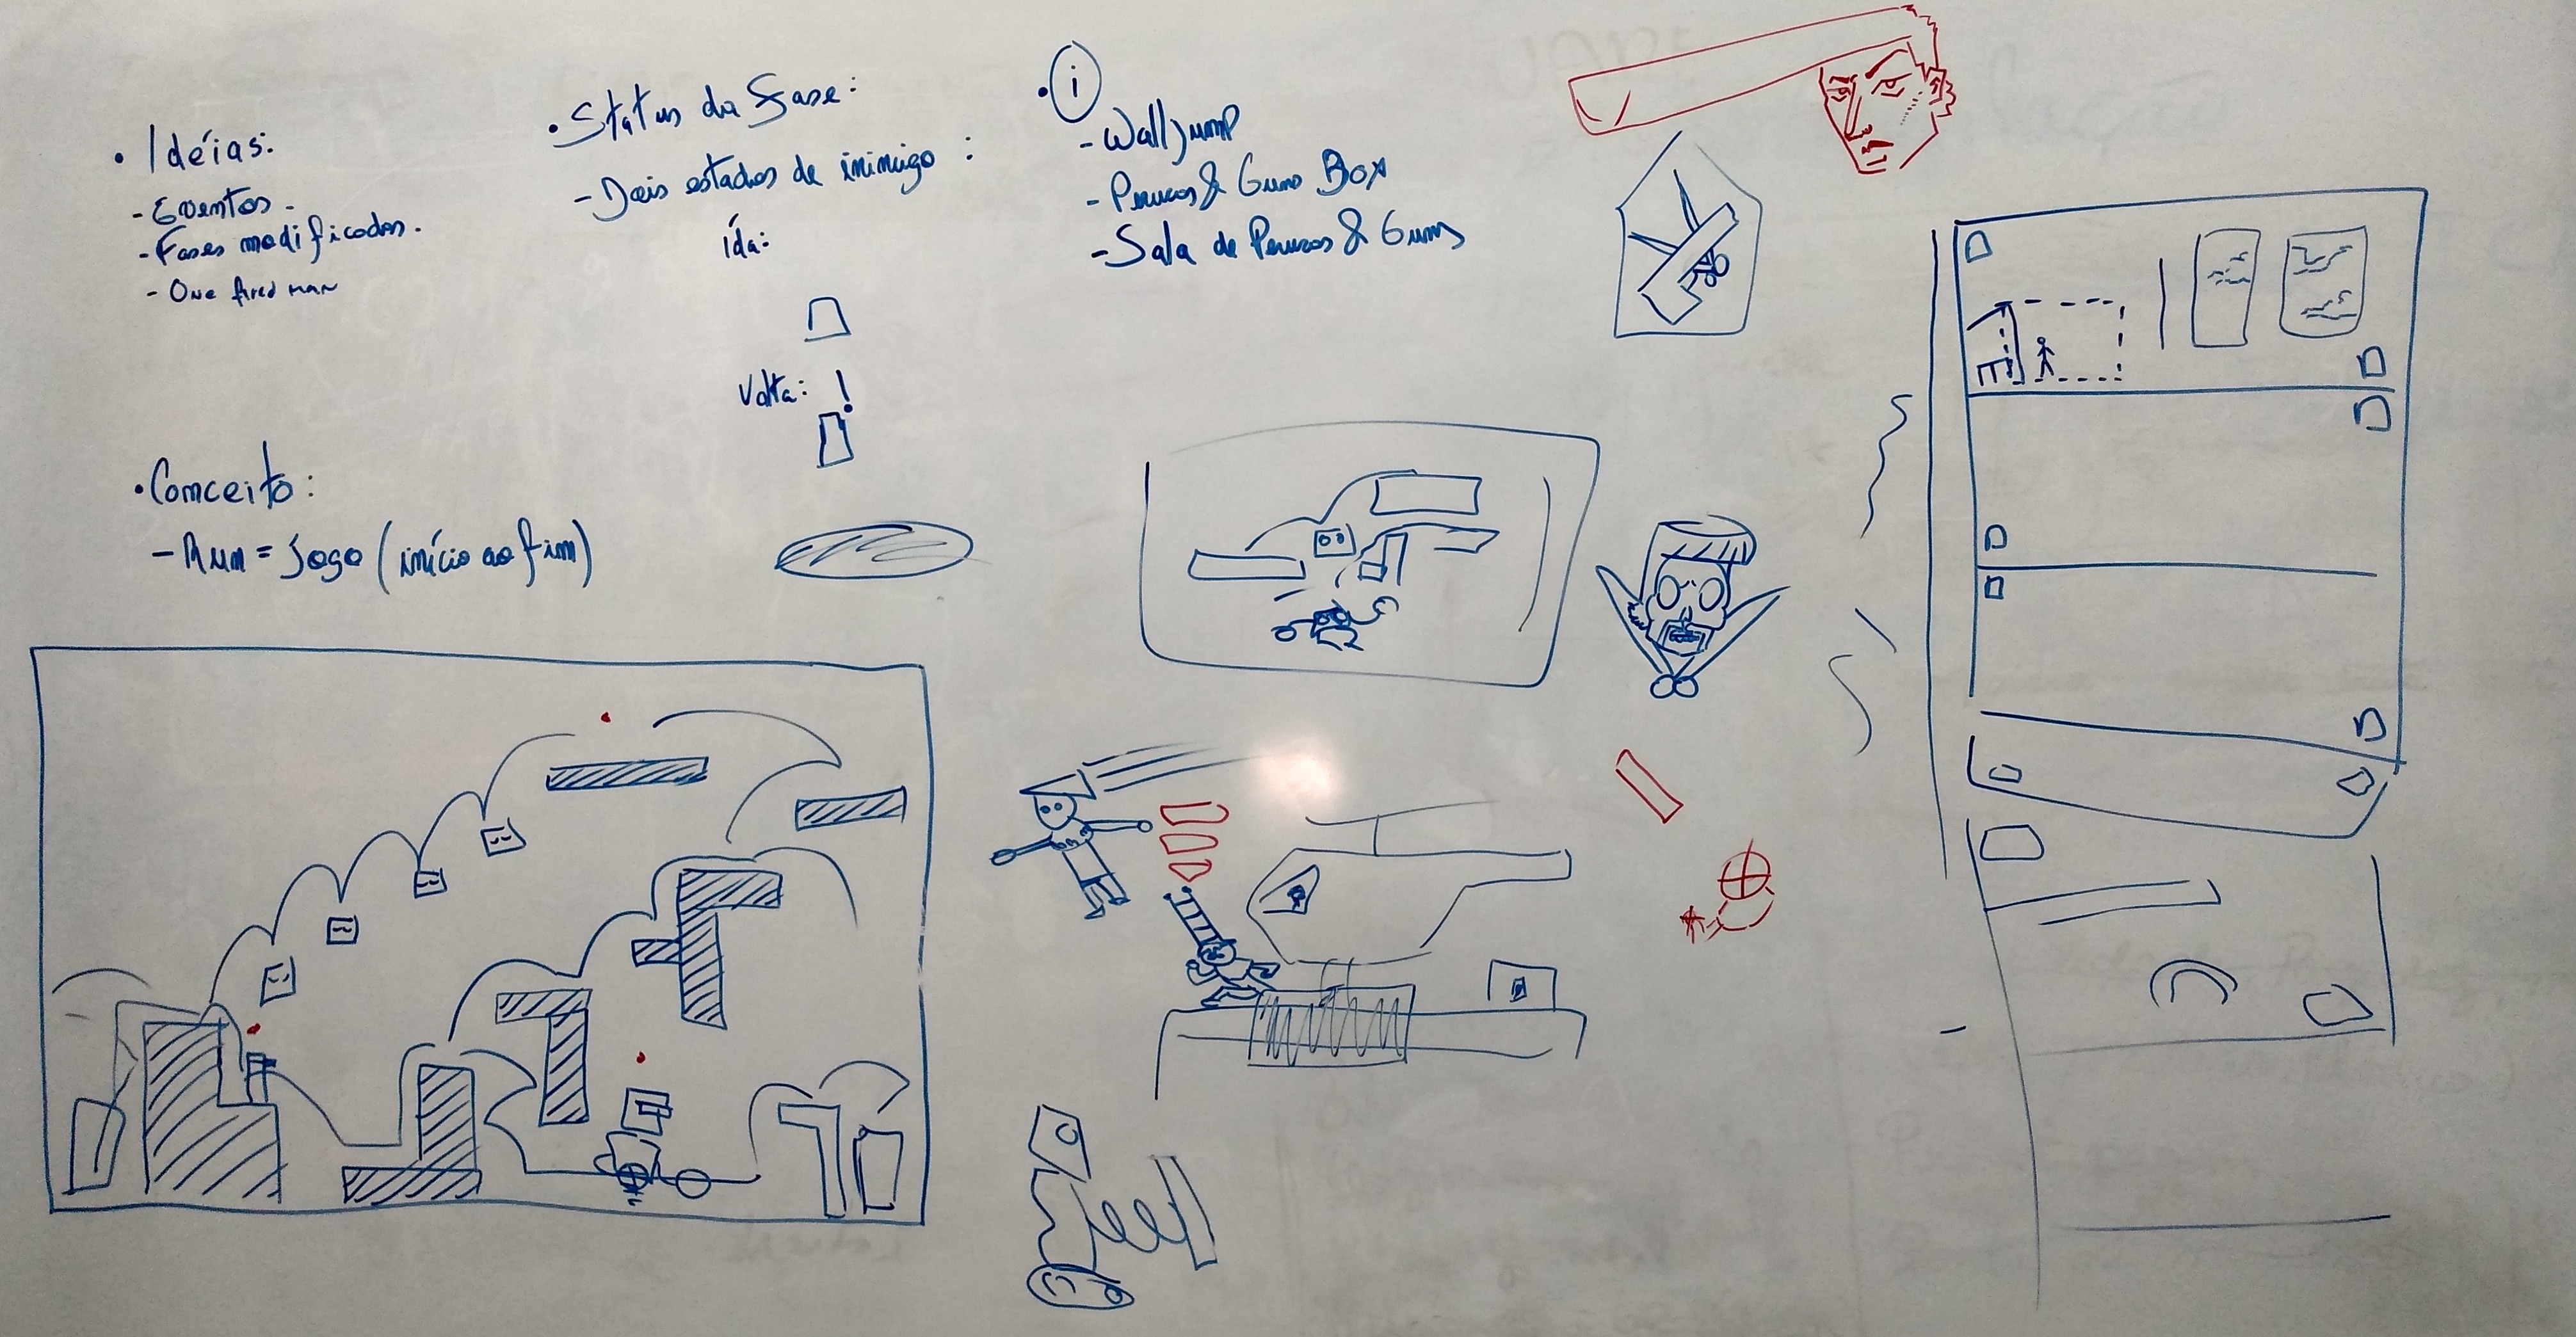 • Idéias:
- Eventos.
- Fases modificadas.
- One fired man
• Status da Fase:
- Dois estados de inimigo :
ida:
Volta: !
• i
- Wall Jump
- Perucas & Guns Box
- Sala de Perucas & Guns
• Conceito:
- Run = Jogo (início ao fim)